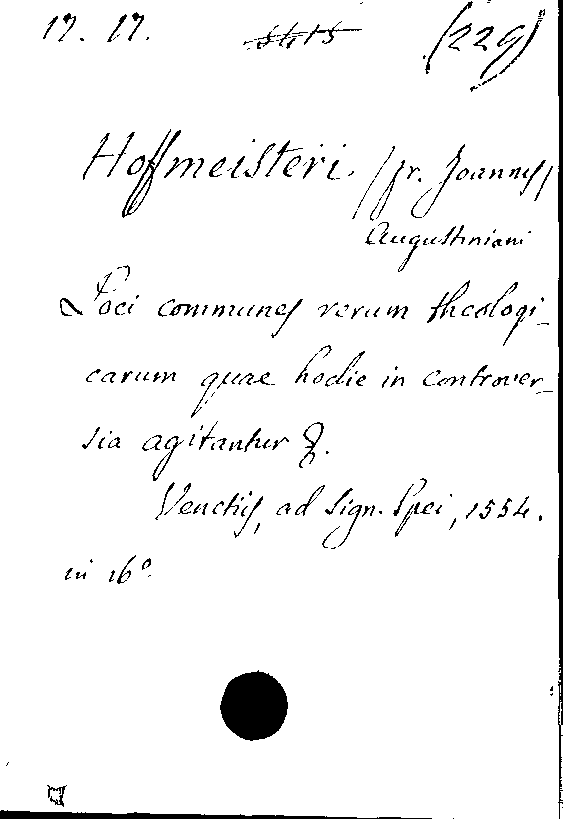 17. 17. 5415 (229)
Hoffmeisteri. (fr. Joannes)
Augustiniani
Loci communes rerum theologi-
carum quae hodie in controver-
sia agitantur &.
Venetiis, ad sign. Spei, 1554.
in 16º.